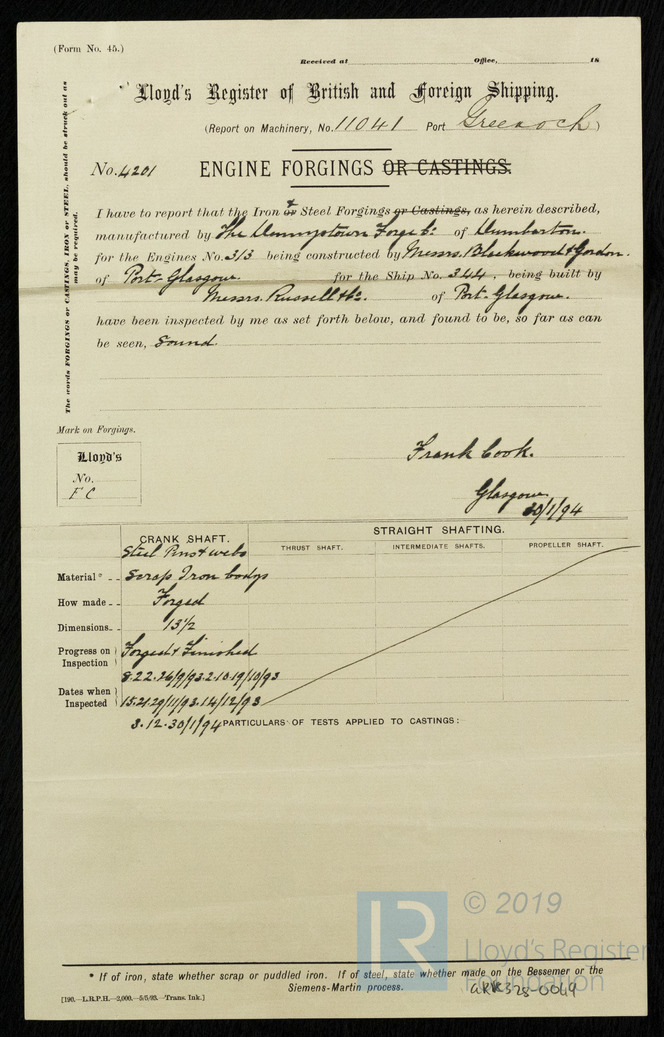 (Form No. 45.)
Received at Office, 18
Lloyd's Register of British and Foreign Shipping.
(Report on Machinery, No. 11041 Port Greenock)
The words FORGINGS or CASTINGS, IRON or STEEL, should be struck out as
may be required.
No. 4201 ENGINE FORGINGS OR CASTINGS.
I have to report that the Iron or & Steel Forgings or Castings, as herein described,
manufactured by The Dennystown Forge Co. of Dumbarton.
for the Engines No. 313 being constructed by Messrs. Blackwood & Gordon.
of Port-Glasgow. for the Ship No. 344, being built by
Messrs. Russell & Co. of Port-Glasgow.
have been inspected by me as set forth below, and found to be, so far as can
be seen, sound.
Mark on Forgings.
Lloyd's
No.
F C
Frank Cook.
Glasgow
30/1/94
CRANK SHAFT. STRAIGHT SHAFTING.
THRUST SHAFT. INTERMEDIATE SHAFTS. PROPELLER SHAFT.
Steel Pins & webs
Material* Scrap Iron bodys
How made Forged
Dimensions 13½
Progress on Inspection Forged & Finished
8.22.26/9/93.2.10.19/10/93
Dates when Inspected 15.21.29/11/93.14/12/93
3.12.30/1/94 PARTICULARS OF TESTS APPLIED TO CASTINGS:
© 2019
LR
Lloyd's Register
Foundation
* If of iron, state whether scrap or puddled iron. If of steel, state whether made on the Bessemer or the
Siemens-Martin process.
[190.—L.R.P.H.—2,000.—5/5/93.—Trans. Ink.]
GRK328-0049